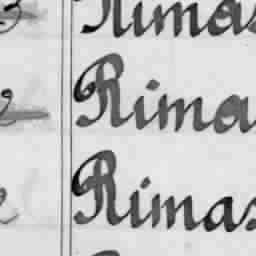 Rimas
Rima
Rimas